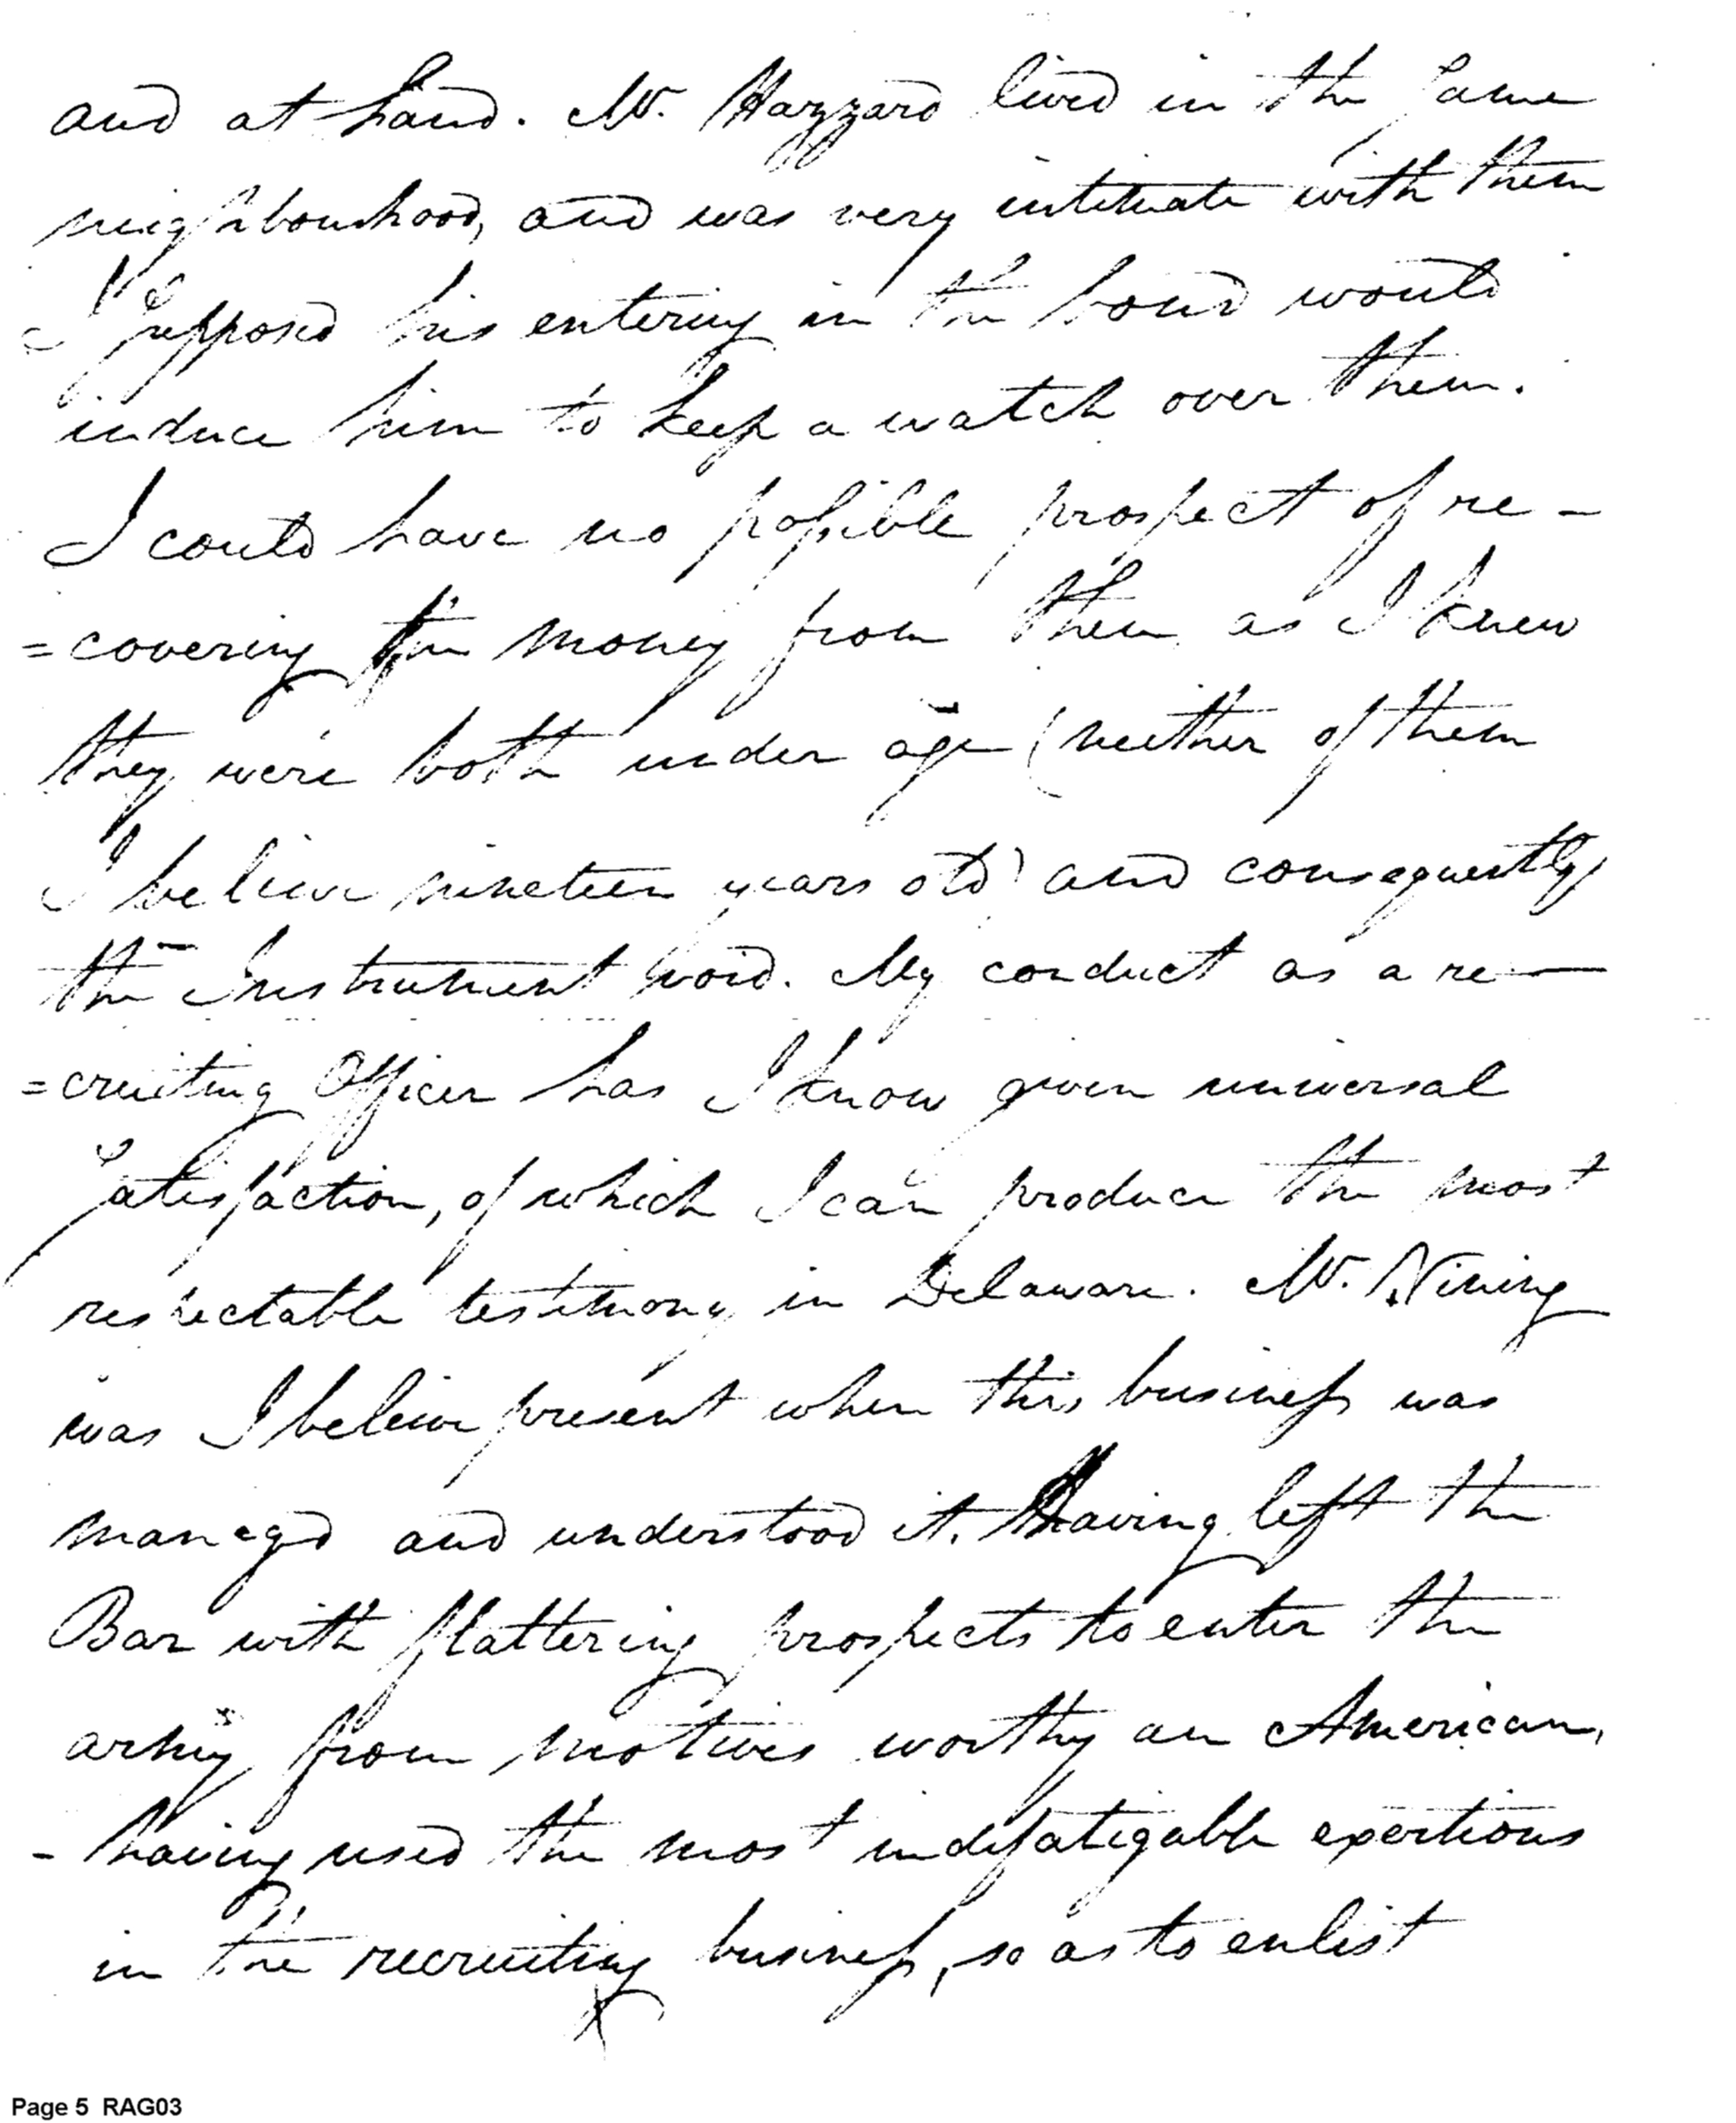 and at hand. Mr. Hazzard lived in the same
neighbourhood, and was very intimate with them
I supposed his entering in the bond would
induce him to keep a watch over them.
I could have no possible prospect of re-
=covering the money from them, as I knew
they were both under age (neither of them
I believe nineteen years old) and consequently
the Instrument void. My conduct as a re-
=cruiting Officer has I know given universal
satisfaction, of which I can produce the most
respectable testimony in Delaware. Mr. Vining
was I beleive present when this business was
managed and understood it. Having left the
Bar with flattering prospects to enter the
army from motives worthy an American,
- having used the most indefatigable exertions
in the recruiting business, so as to enlist
Page 5 RAG03